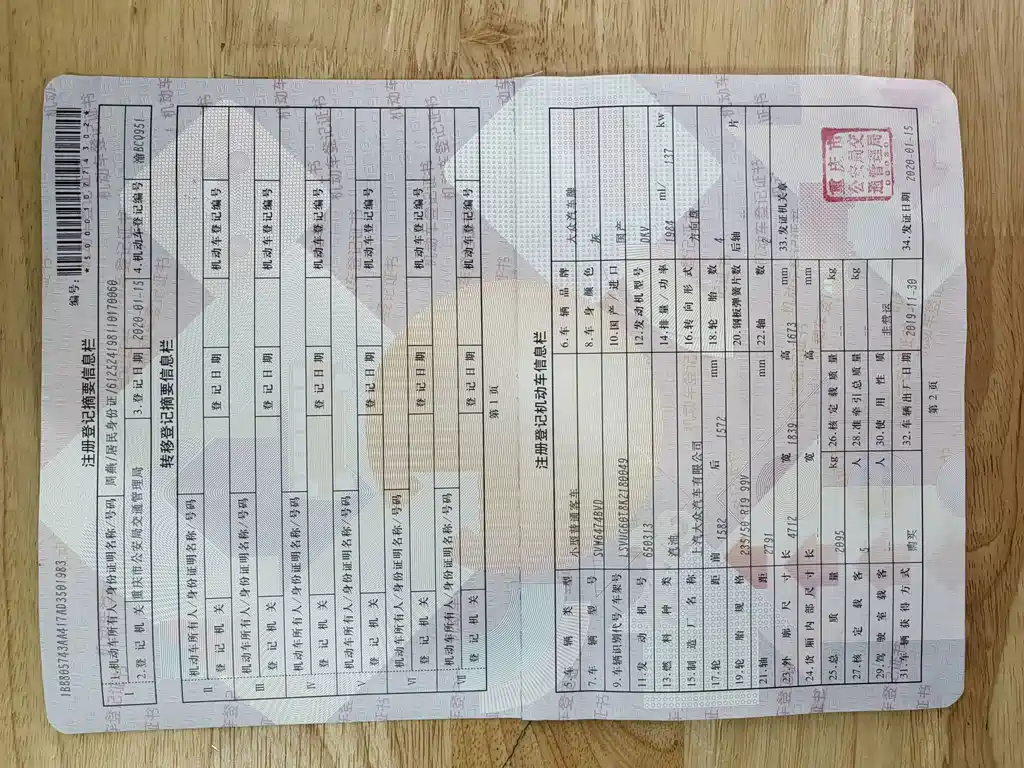 1BB805743AA417AD3501983
编号:
*500010274302*
注册登记摘要信息栏
I 1.机动车所有人/身份证明名称/号码 周燕/居民身份证/612324198110170060
2.登记机关 重庆市公安局交通管理局 3.登记日期 2020-01-15 4.机动车登记编号 渝BCQ951
转移登记摘要信息栏
II 机动车所有人/身份证明名称/号码
登记机关 登记日期 机动车登记编号
III 机动车所有人/身份证明名称/号码
登记机关 登记日期 机动车登记编号
IV 机动车所有人/身份证明名称/号码
登记机关 登记日期 机动车登记编号
V 机动车所有人/身份证明名称/号码
登记机关 登记日期 机动车登记编号
VI 机动车所有人/身份证明名称/号码
登记机关 登记日期 机动车登记编号
VII 机动车所有人/身份证明名称/号码
登记机关 登记日期 机动车登记编号
第 1 页
注册登记机动车信息栏
5.车辆类型 小型普通客车 6.车辆品牌 大众汽车牌
7.车辆型号 SVW6474BVD 8.车身颜色 灰
9.车辆识别代号/车架号 LSVUG60T8K2180049 10.国产/进口 国产
11.发动机号 650313 12.发动机型号 DKV
13.燃料种类 汽油 14.排量/功率 1984 ml/ 137 kw
15.制造厂名称 上汽大众汽车有限公司 16.转向形式 方向盘
17.轮距 前 1582 后 1572 mm 18.轮胎数 4
19.轮胎规格 235/50 R19 99V 20.钢板弹簧片数 后轴 片
21.轴距 2791 mm 22.轴数 2
23.外廓尺寸 长 4712 宽 1839 高 1673 mm 33.发证机关章
24.货厢内部尺寸 长 宽 高 mm
25.总质量 2095 kg 26.核定载质量 kg
27.核定载客 5 人 28.准牵引总质量 kg
29.驾驶室载客 人 30.使用性质 非营运
31.车辆获得方式 购买 32.车辆出厂日期 2019-11-30 34.发证日期 2020-01-15
重庆市
公安局交
通管理局
第 2 页